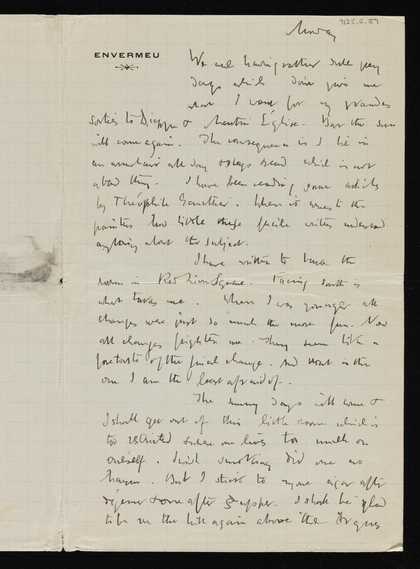 Monday
ENVERMEU
We are having rather dull grey
days which don't give me
what I want for my grandes
sorties to Dieppe & Martin Église. But the sun
will come again. The consequence is I lie in
an armchair all day & read which is not
a bad thing. I have been reading some articles
by Théophile Gauthier. When it comes to the
painters how little these facile writers understand
anything about the subject.
I have written to take the
room in Red Lion Square. Facing south is
what takes me. When I was younger all
changes were just so much the more fun. Now
all changes frighten me. They seem like a
foretaste of the final change. And that is the
one I am the least afraid of.
The sunny days will come &
I shall get out of this little room which is
too restricted & where one lives too much on
oneself. Until smoking did me no
harm. But I stick to one cigar after
déjeuner & one after supper. I shall be glad
to be in the hills again above the Arques